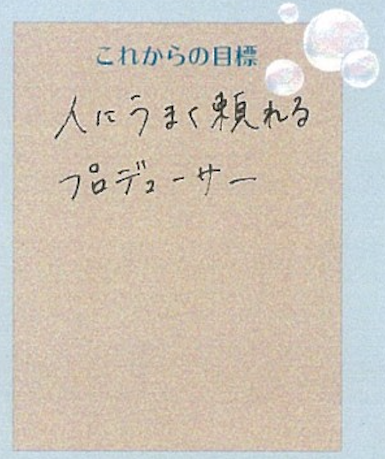 これからの目標
人にうまく頼れる
プロデューサー